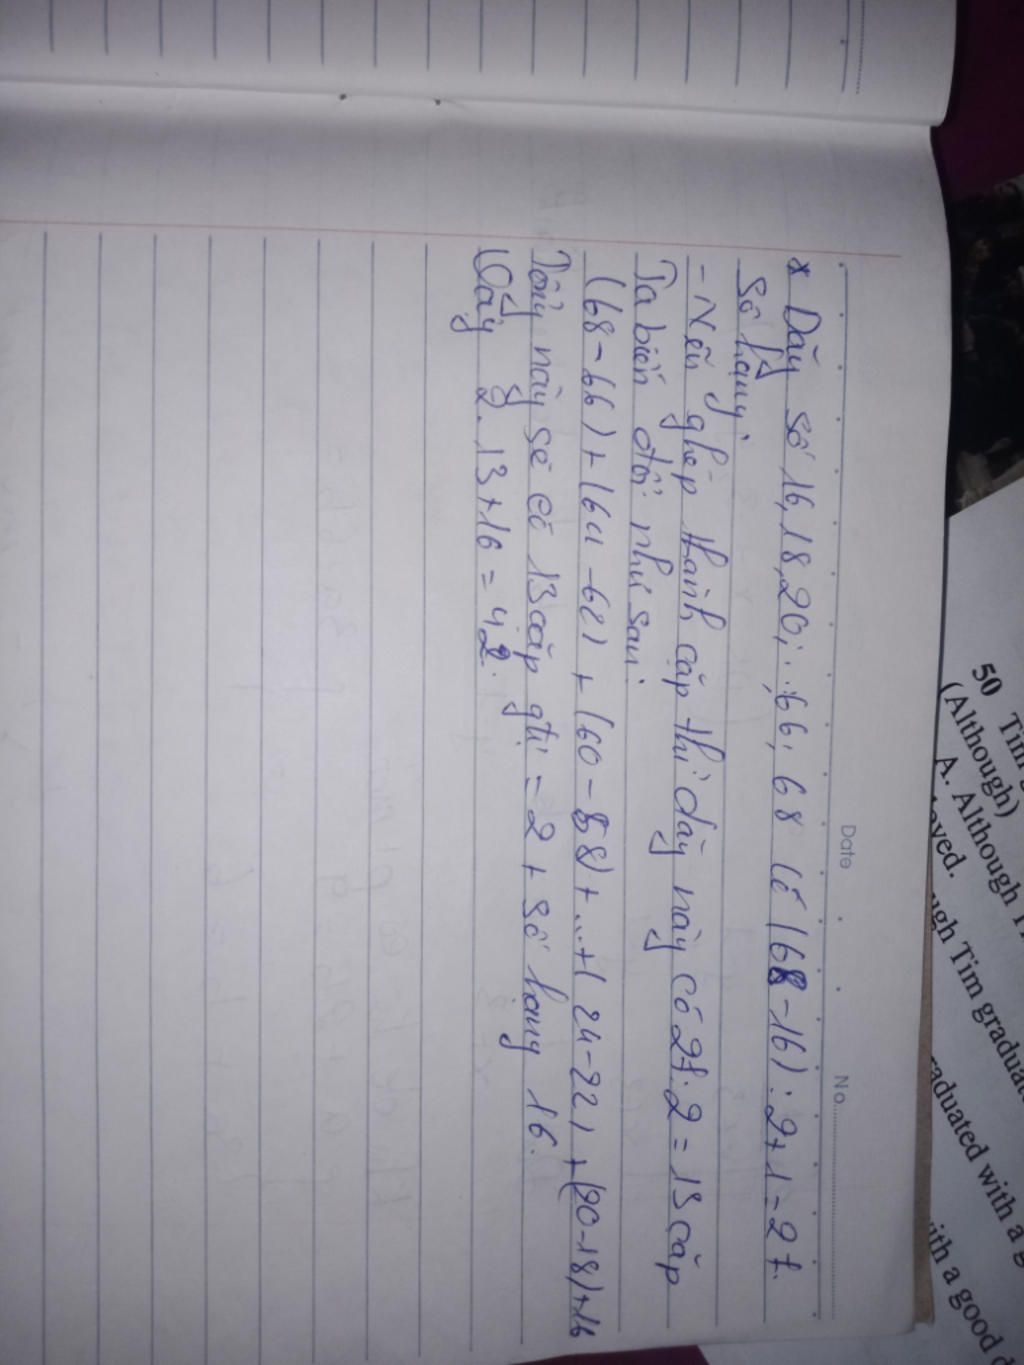 Date
No.
* Dãy số 16, 18, 20; ...; 66; 68 có (68 - 16) : 2 + 1 = 27
số hạng.
- Nếu ghép thành cặp thì dãy này có 27 : 2 = 13 cặp
Ta biến đổi như sau:
(68 - 66) + (64 - 62) + (60 - 58) + ... + (24 - 22) + (20 - 18) + 16
Tổng này sẽ có 13 cặp gtrị = 2 + số hạng 16.
Vậy 2. 13 + 16 = 42.
50 Tim
(Although)
A. Although
graduated with a
with a good